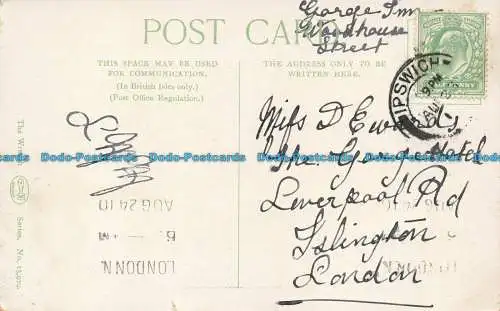 POST CARD
THIS SPACE MAY BE USED
FOR COMMUNICATION.
(In British Isles only.)
(Post Office Regulation.)
THE ADDRESS ONLY TO BE
WRITTEN HERE.
George Inn
Woodhouse
Street
IPSWICH
9 PM
AU
Miss D E
The George Hotel
Liverpool Rd
Islington
London
AUG 24 10
LONDON N.
AUG 24 10
LONDON N.
The
Series. No.
Dodo-Postcards Dodo-Postcards Dodo-Postcards Dodo-Postcards